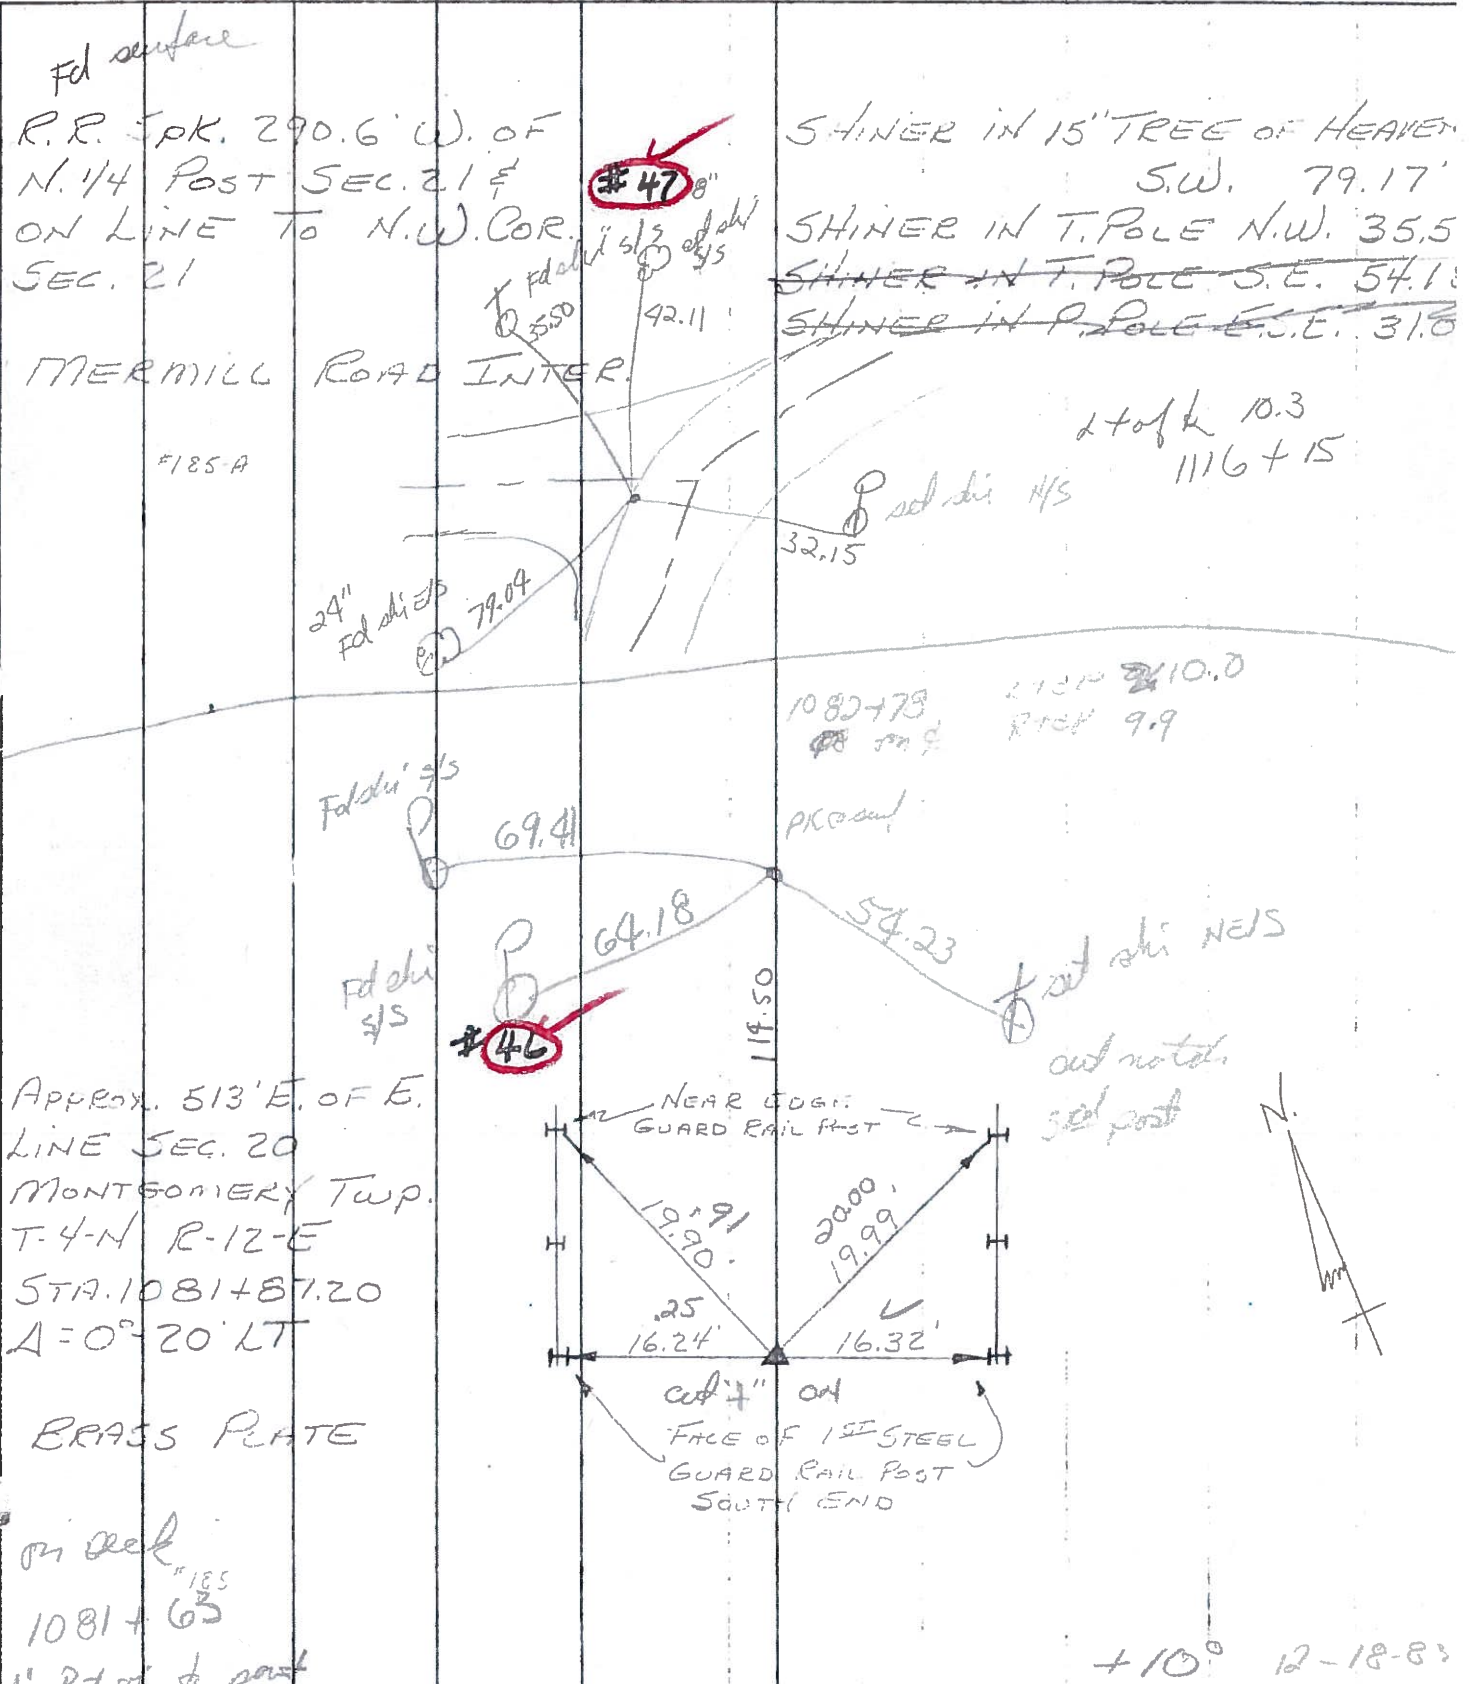 Fd surface
R.R. Spk. 290.6' W. OF
N. 1/4 POST SEC. 21 &
ON LINE TO N.W. COR.
SEC. 21
MERMILL ROAD INTER.
#185-A
# 47
8"
S/S
S/S
35.50
42.11
SHINER IN 15" TREE OF HEAVEN
S.W. 79.17'
SHINER IN T. POLE N.W. 35.5
SHINER IN T. POLE S.E. 54.18
SHINER IN P. POLE E.S.E. 31.0
10.3
1116 + 15
set shi N/S
32.15
24"
Fd shi E/S
79.04
1082+78
10.0
9.9
Fd shi S/S
69.41
64.18
54.23
set shi NE/S
Fd shi
S/S
# 46
114.50
cut notch
3rd post
APPROX. 513' E. OF E.
LINE SEC. 20
MONTGOMERY TWP.
T-4-N R-12-E
STA. 1081+87.20
Δ=0°-20' LT
BRASS PLATE
NEAR EDGE
GUARD RAIL POST
19.90
.91
20.00
19.99
.25
16.24'
16.32'
N.
cut "+" ON
FACE OF 1ST STEEL
GUARD RAIL POST
SOUTH END
on deck
"185
1081 + 63
+10° 12-18-83